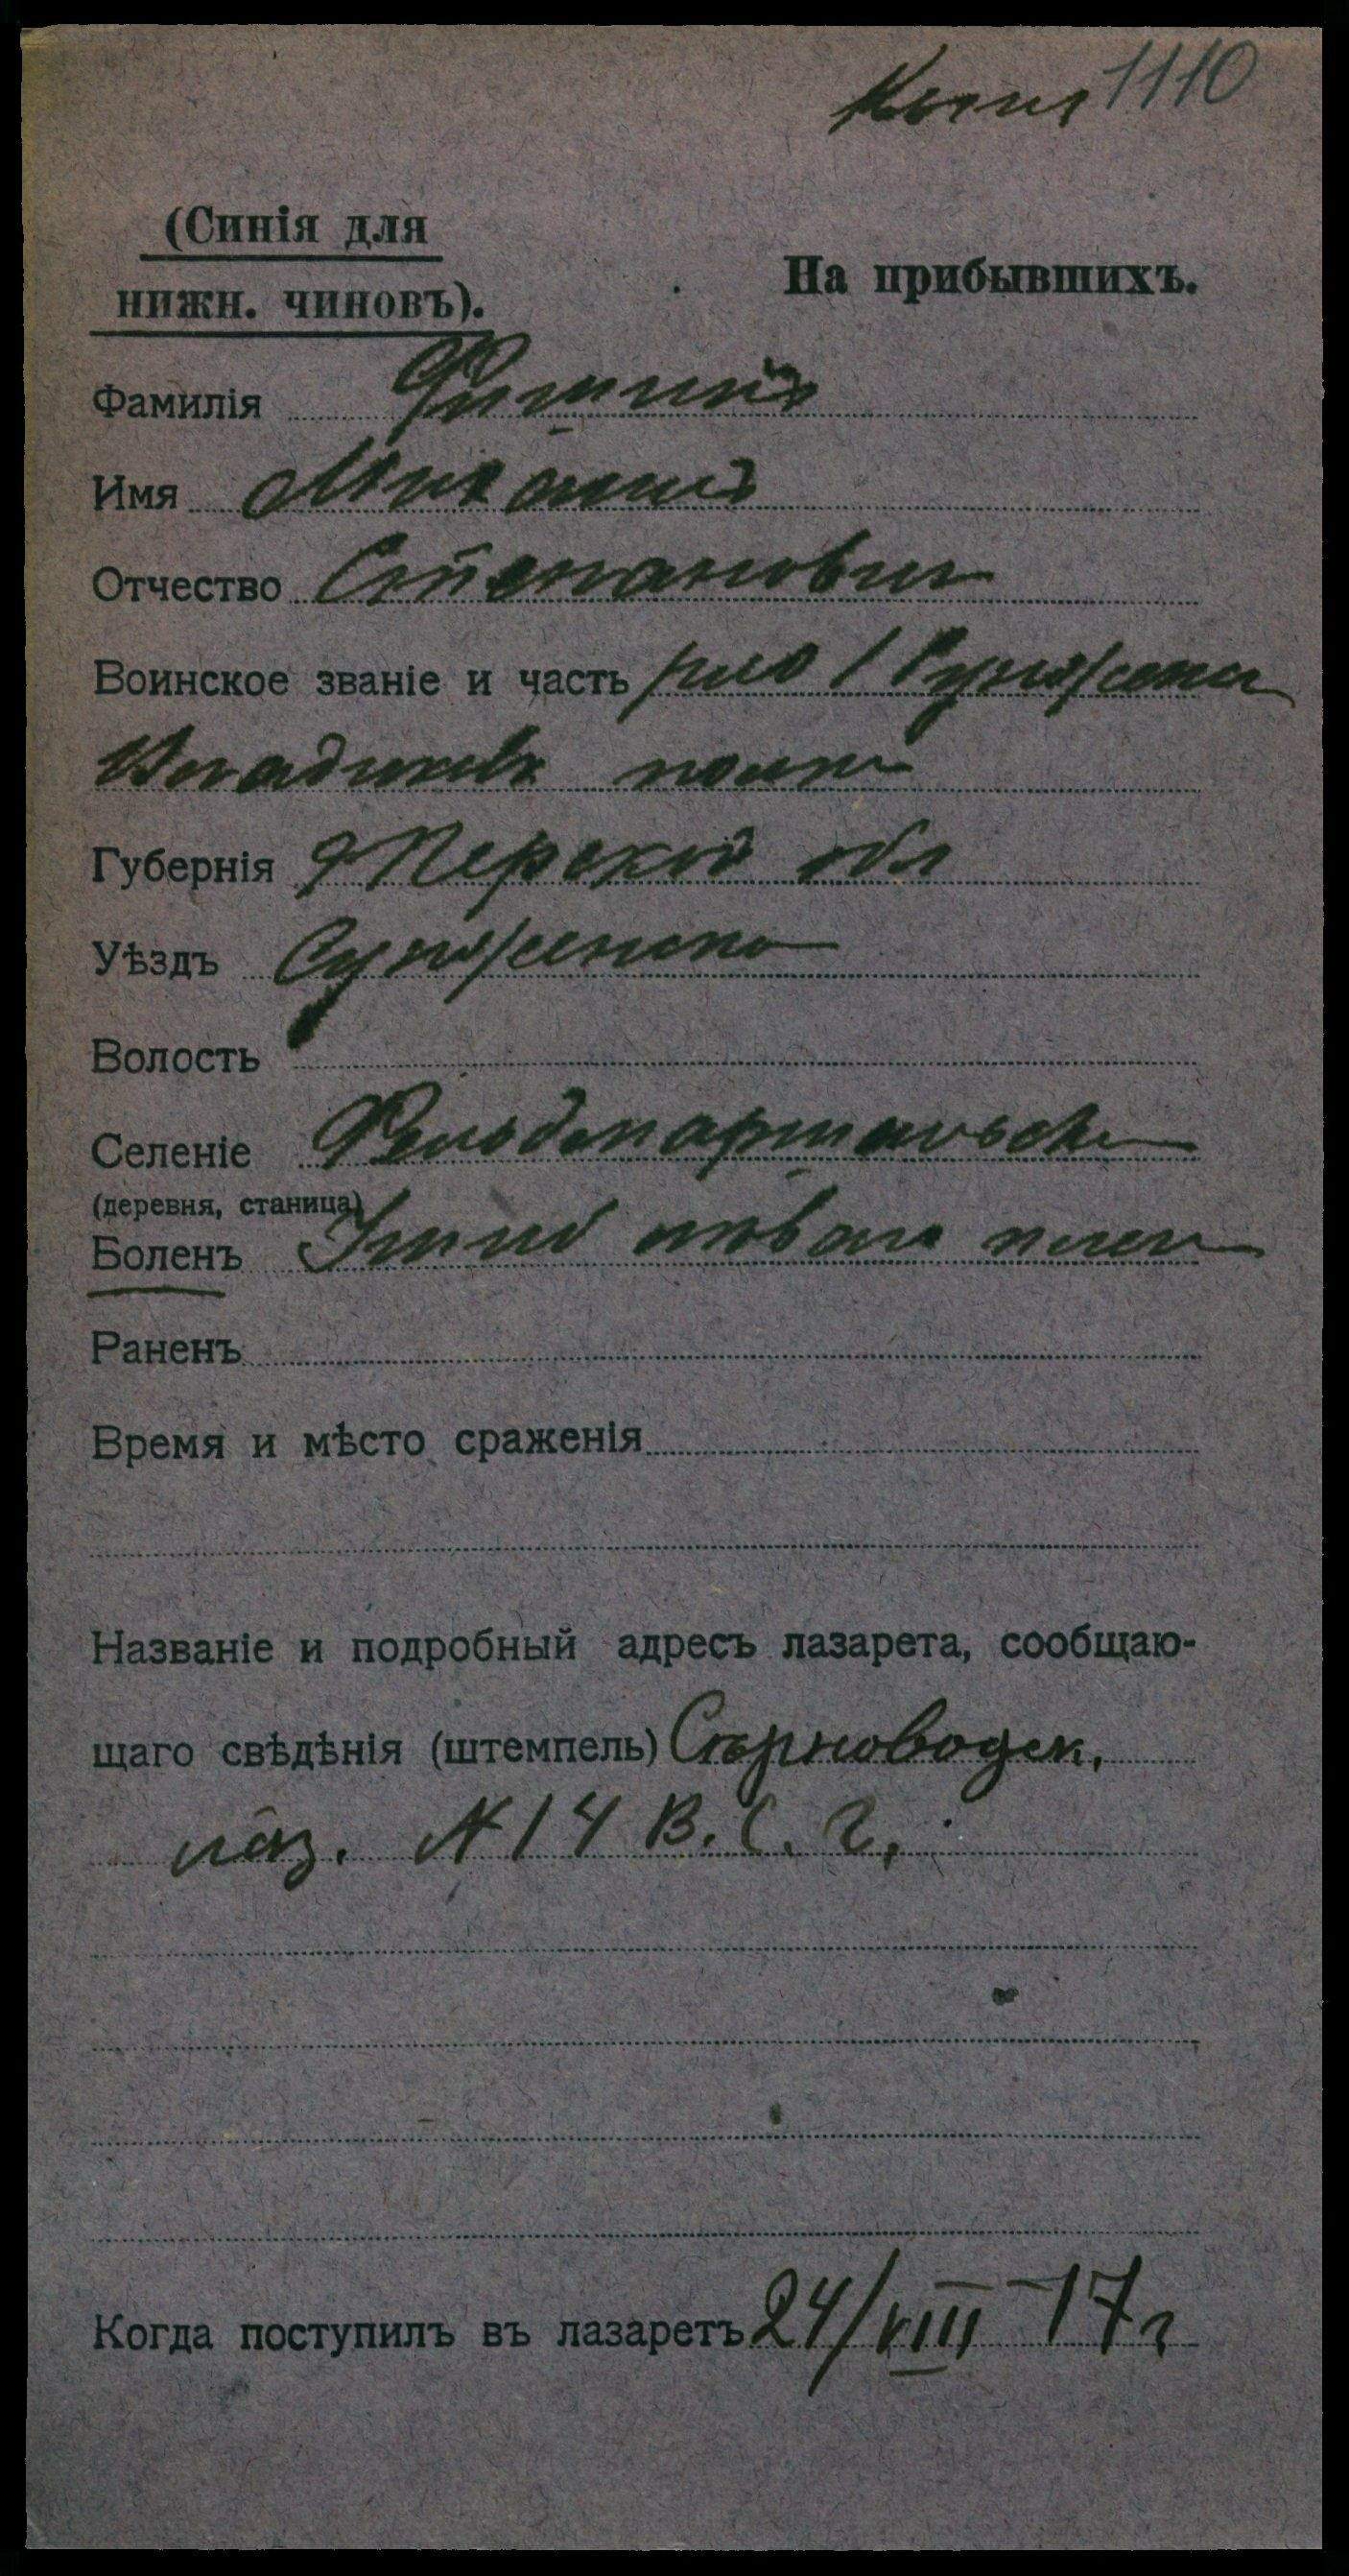 Копия 1110
(Синія для
нижн. чиновъ).
На прибывшихъ.
Фамилія
Имя Михаилъ
Отчество Степанович
Воинское званіе и часть 1 Сунженск
Владикавк полка
Губернія Терской обл
Уѣздъ Сунженско
Волость
Селеніе Фельдмаршальск
(деревня, станица)
Боленъ Ушиб плеч
Раненъ
Время и мѣсто сраженія
Названіе и подробный адресъ лазарета, сообщаю-
щаго свѣдѣнія (штемпель) Сѣрноводск.
лаз. № 14 В. С. Г.
Когда поступилъ въ лазаретъ 24/VIII 17 г